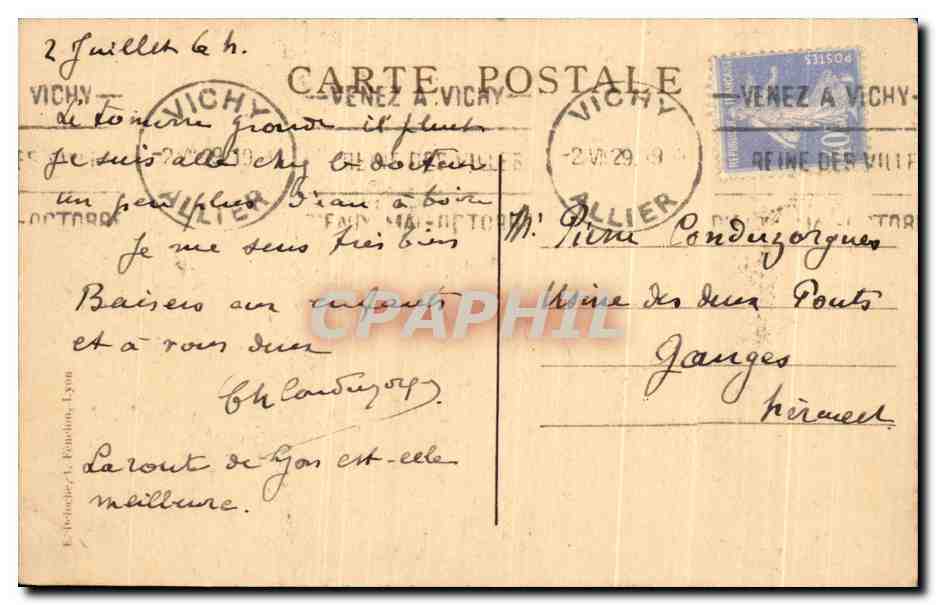 2 Juillet 6 h.
CARTE POSTALE
Le tonnerre gronde il pleut
Je suis allé chez le docteur
un peu plus d'eau à boire
Je me sens très bien
Baisers aux enfants
et à vous deux
Ch Conduzorgues
La route de Lyon est-elle
meilleure.
VICHY
ALLIER
VENEZ A VICHY
REINE DES VILLES
MAI-OCTOBRE
VICHY
2 VII 29
ALLIER
VENEZ A VICHY
REINE DES VILLE
POSTES
Mr Pierre Conduzorgues
Usine des deux Ponts
Ganges
Hérault
E. Deloche, 1, Fénelon, Lyon
CPAPHIL